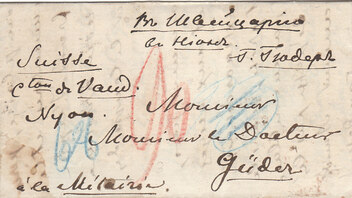 Въ Швейцарію
Suisse
cton de Vaud.
Nyon.
Monsieur
Monsieur le Docteur
Güder
à la Métairie.